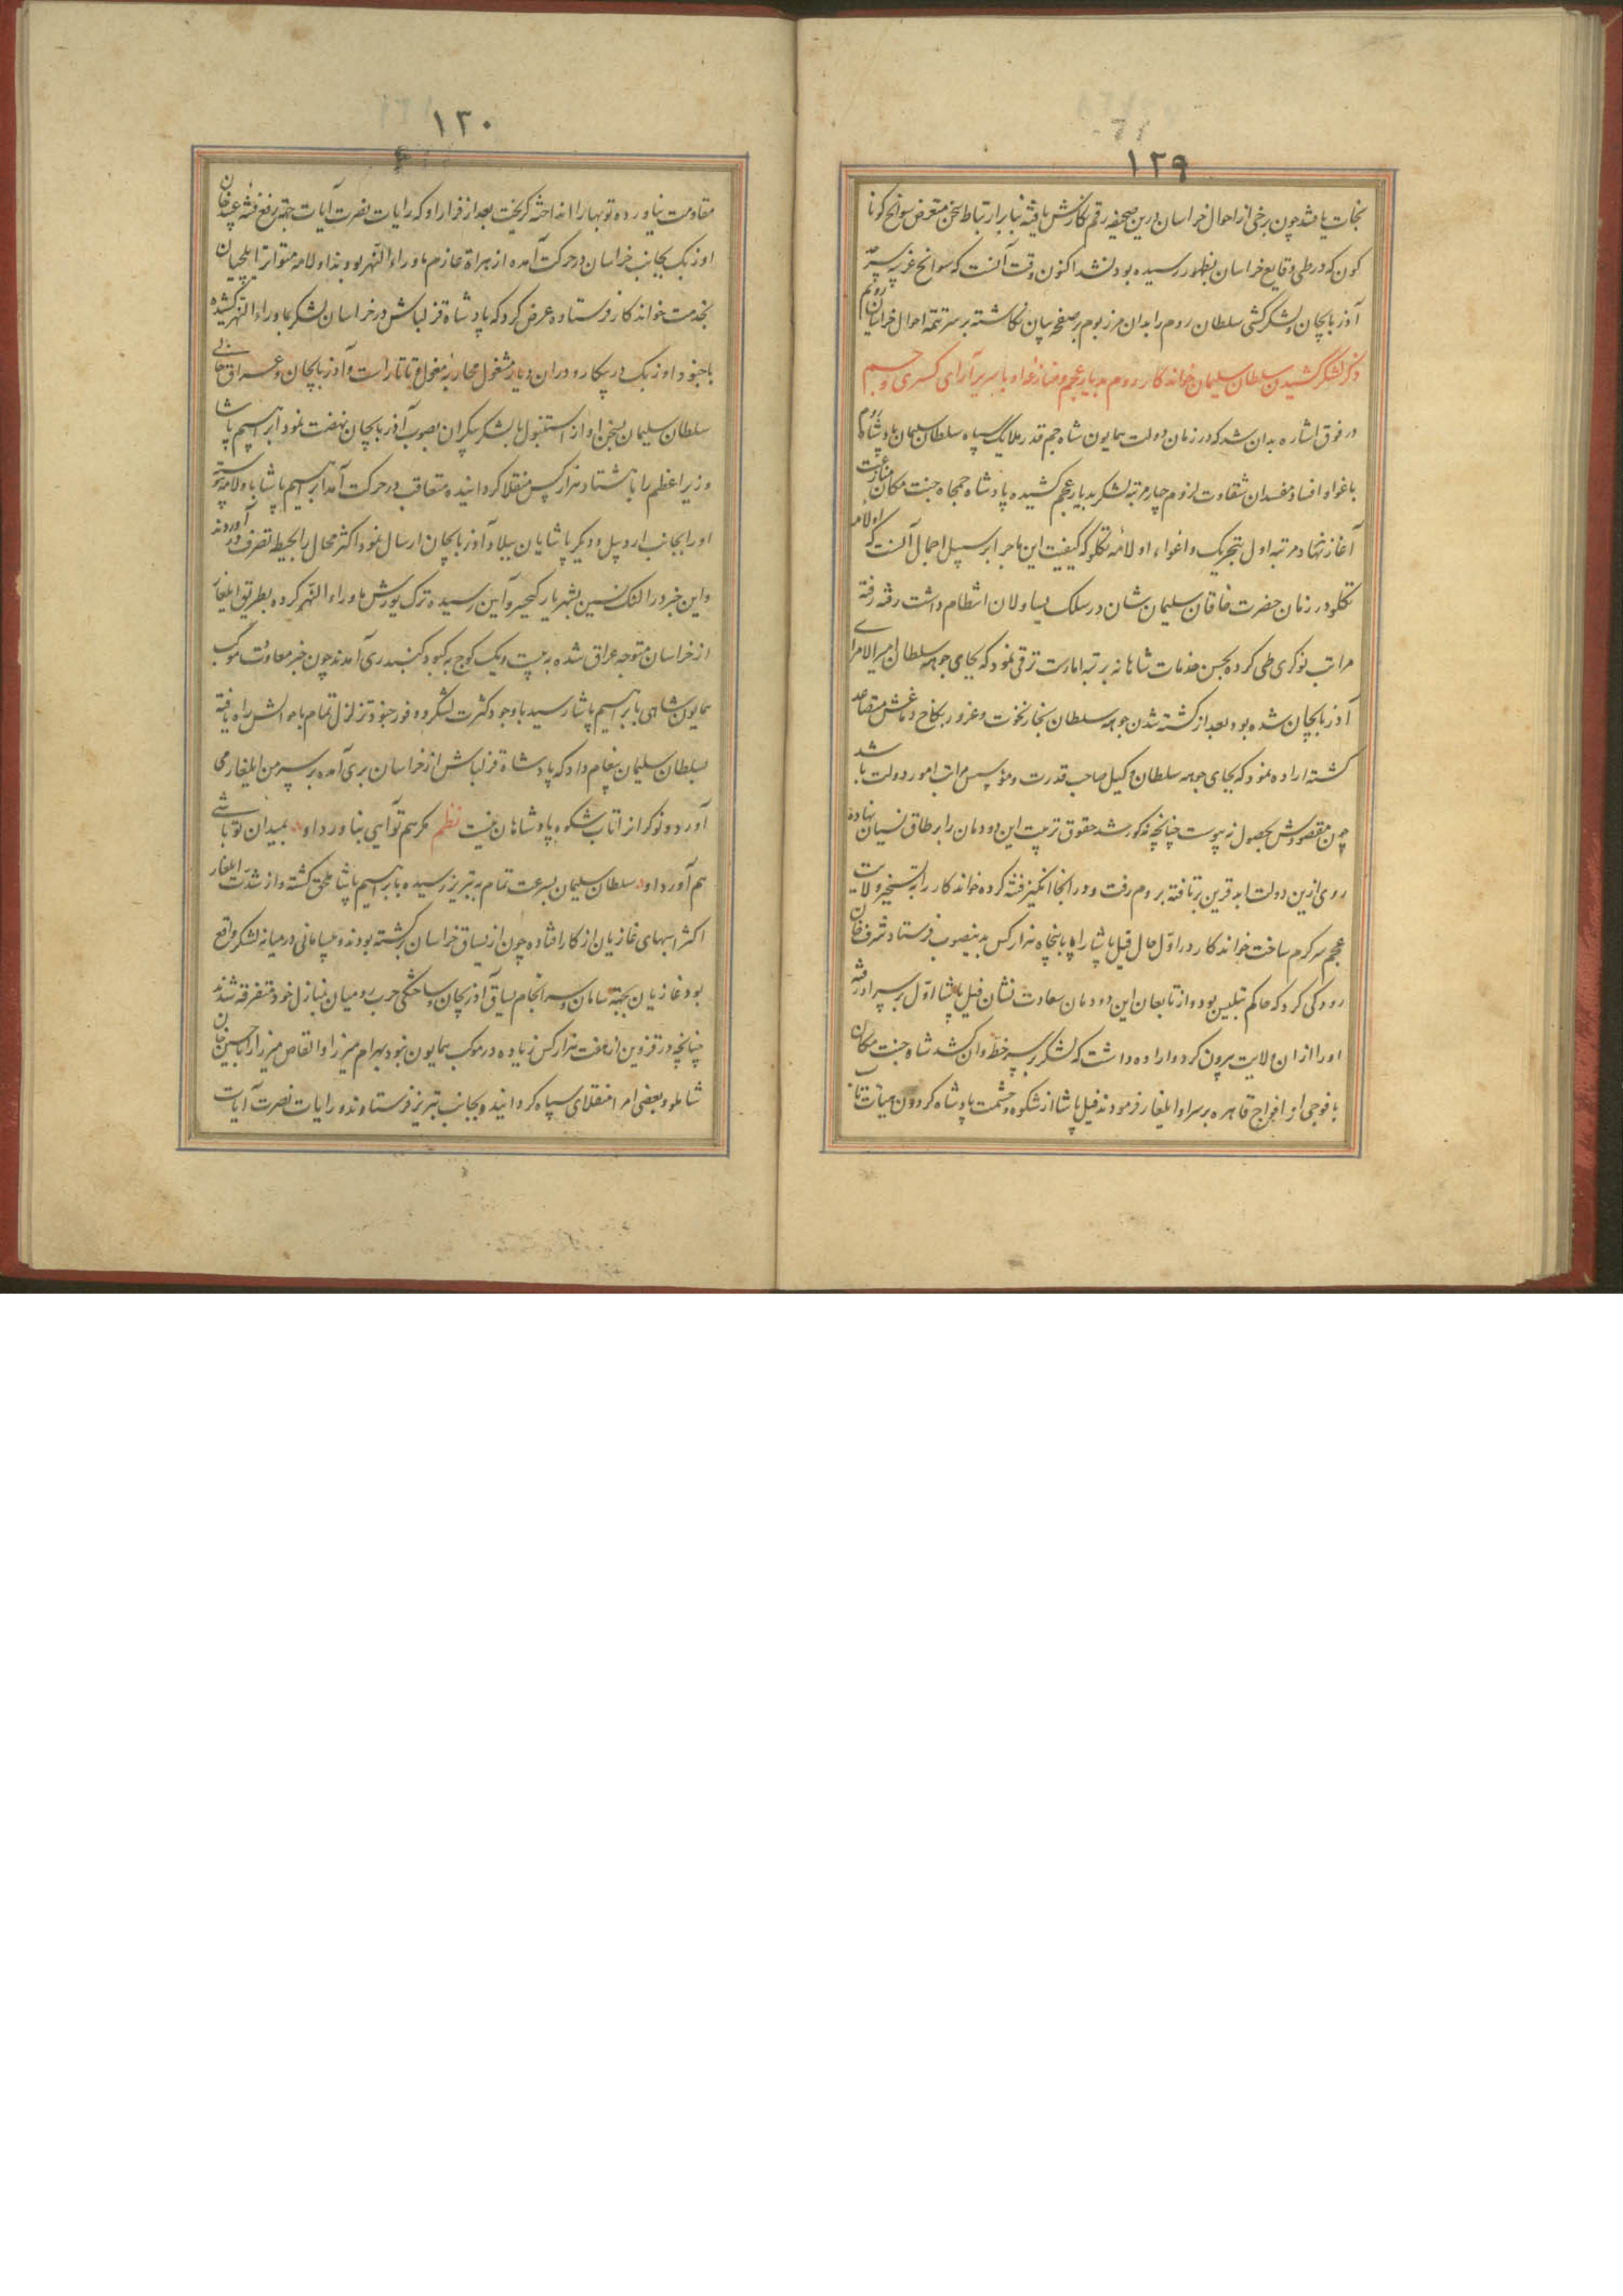 ۱۲۹
نجات یافتند چون برخی از احوال خراسان درین صحیفه رقم نگارش یافته بنا بر ارتباط سخن متعرض سوانح کونا
کون که در طی وقایع خراسان بظهور رسیده بود نشد اکنون وقت آنست که سوانح غریبه سرحد
آذربایجان و لشکرکشی سلطان روم را بدان مرز بوم بر صفحه بیان نکاشته بر سر تتمه احوال خراسان رویم
ذکر لشکر کشیدن سلطان سلیمان خواندکار روم بدیار عجم و منازعه او با سریر آرای کسری و جم
در فوق اشاره بدان شد که در زمان دولت همایون شاه جم قدر ملایک سپاه سلطان سلیمان پادشاه روم
باغوا و افساد مفسدان شقاوت لزوم چهار مرتبه لشکر بدیار عجم کشیده پادشاه جمجاه جنت مکان منازعت
آغاز نهاد مرتبه اول بتحریک و اغواء اولامه تکلو که کیفیت این ماجرا بر سبیل اجمال آنست که اولامه
تکلو در زمان حضرت خاقان سلیمان شان در سلک یساولان انتظام داشت رفته رفته
مراتب نوکری طی کرده بحسن خدمات شاهانه برتبه امارت ترقی نمود که بجای جوهه سلطان امیرالامرای
آذربایجان شده بود بعد از کشته شدن جوهه سلطان بخار نخوت و غرور بکاخ دماغش متصاعد
کشته اراده نمود که بجای جوهه سلطان وکیل صاحب قدرت و مؤسس مراتب امور دولت باشد
چون مقصودش بحصول نه پیوست چنانچه مذکور شد حقوق تربیت این دودمان را بر طاق نسیان نهاده
روی ازین دولت ابد قرین بر تافته بروم رفت و در انجا انکیز فتنه کرده خواندکار را به تسخیر ولایت
عجم سرکرم ساخت خواندکار در اول حال فیل پاشا را با پنجاه هزار کس بدینصوب فرستاد شرف خان
رودکی کرد که حاکم تبلیس بود و از تابعان این دودمان سعادت نشان فیل پاشا اول بر سر او رفته
او را از ان ولایت بیرون کرد و اراده داشت که لشکر بر سر خطه وان کشد شاه جنت مکان
با فوجی از افواج قاهره بر سر او ایلغار فرمودند فیل پاشا از شکوه و حشمت پادشاه کردون هیأت تاب
۱۳۰
مقاومت نیاورده توبها را انداخته کریخت بعد از فرار او که رایات نصرت آیات جهة رفع فتنه عبید خان
اوزبک بجانب خراسان در حرکت آمده از هراة عازم ماوراء النهر بودند اولامه متواتر ایلچیان
بخدمت خواندکار فرستاده عرض کرد که پادشاه قزلباش در خراسان لشکر بماوراء النهر کشیده
با جنود اوزبک در پیکار و در ان دیار مشغول محاربه مغول و تاتار است و آذربایجان و عراق خالی
سلطان سلیمان بسخن او از استنبول با لشکر بیکران بصوب آذربایجان نهضت نمود ابراهیم پاشا
وزیر اعظم را با هشتاد هزار کس منقلا کردانیده متعاقب در حرکت آمد ابراهیم پاشا باولامه پیوسته
او را بجانب اردبیل و دیکر پاشایان ببلاد آذربایجان ارسال نمود اکثر محال را بحیطه تصرف در آوردند
و این خبر در النک نسین بشهریار کیخسرو آیین رسیده ترک یورش ماوراء النهر کرده بطریق ایلغار
از خراسان متوجه عراق شده به بیست و یک کوچ به کبود کنبد ری آمدند چون خبر معاودت موکب
همایون شاهی بابراهیم پاشا رسید با وجود کثرت لشکر و وفور جنود تزلزل تمام باحوالش راه یافته
بسلطان سلیمان پیغام داد که پادشاه قزلباش از خراسان بری آمده بر سر من ایلغار می
آورد و نوکر از اتاب شکوه پادشاهان نیست نظم مکر هم تو آیی بناورد او بمیدان تو باشی
هم آورد او سلطان سلیمان بسرعت تمام به تبریز رسیده بابراهیم پاشا ملحق کشته و از شدت ایلغار
اکثر اسبهای غازیان از کار افتاده چون از یساق خراسان برکشته بودند و بیسامانی در میانه لشکر واقع
بود غازیان بجهة سامان و سرانجام یساق آذربیجان و ساختکی حرب رومیان بمنازل خود متفرقه شدند
چنانچه در قزوین از هفت هزار کس زیاده در موکب همایون نبود بهرام میرزا و القاص میرزا را با حسین خان
شاملو و بعضی امرا منقلای سپاه کردانیده بجانب تبریز فرستادند و رایات نصرت آیات